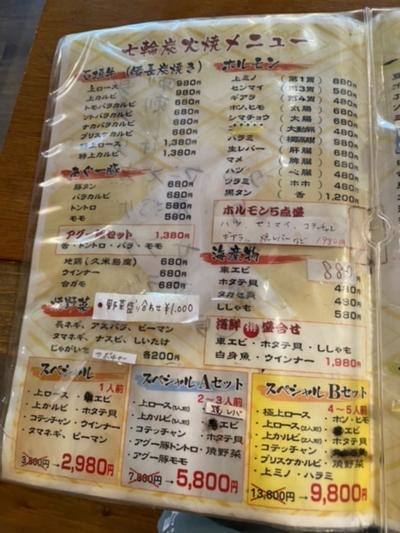 七輪炭火焼メニュー
石垣牛（備長炭焼き）
上ロース 980円
上カルビ 980円
トモバラカルビ 680円
ソトバラカルビ 680円
ナカバラカルビ 680円
ブリスケカルビ 680円
特上ロース 1,380円
特上カルビ 1,380円
あぐー豚
豚タン 680円
バラカルビ 680円
トントロ 680円
モモ 580円
アグー豚セット 1,380円
舌・トントロ・バラ・モモ
地鶏（久米島産） 580円
ウインナー
合ガモ 680円
焼野菜
野菜盛り合わせ ¥1,000
長ネギ、アスパラ、ピーマン
タマネギ、ナスビ、しいたけ
じゃがいも 各200円
ホルモン
上ミノ（第1胃）680円
センマイ（第3胃）580円
ギアラ（第4胃）480円
ホソ,ヒモ（小腸）
シマチョウ（大腸）
（大動脈）480円
ハラミ（横隔膜）680円
生レバー（肝臓）580円
マメ（腎臓）480円
ハツ（心臓）480円
ツラミ（ホホ）480円
黒タン（舌）1,200円
ホルモン5点盛
ハツ、センマイ、コテッチャン
ギアラ、焼レバーなど 980円
海産物
車エビ
ホタテ貝
タカセ貝
ししゃも 580円
海鮮 得 盛合せ
車エビ・ホタテ貝・ししゃも
白身魚・ウインナー 1,980円
スペシャル 1人前
・上ロース ・エビ
・上カルビ ホタテ貝
・コテッチャン・ウインナー
・タマネギ、ピーマン
3,800円→2,980円
スペシャルAセット 2～3人前
・上ロース(1人前)
・上カルビ(1人前) ・エビ
・コテッチャン ・ホタテ貝
・アグー豚トントロ・焼野菜
・アグー豚モモ
7,800円→5,800円
スペシャルBセット 4～5人前
・極上ロース ・ホソ・ヒモ
・上ロース(2人前) ・エビ
・上カルビ(2人前) ・ホタテ貝
・コテッチャン
・ブリスケカルビ・焼野菜
・上ミノ・ハラミ
13,800円→9,800円